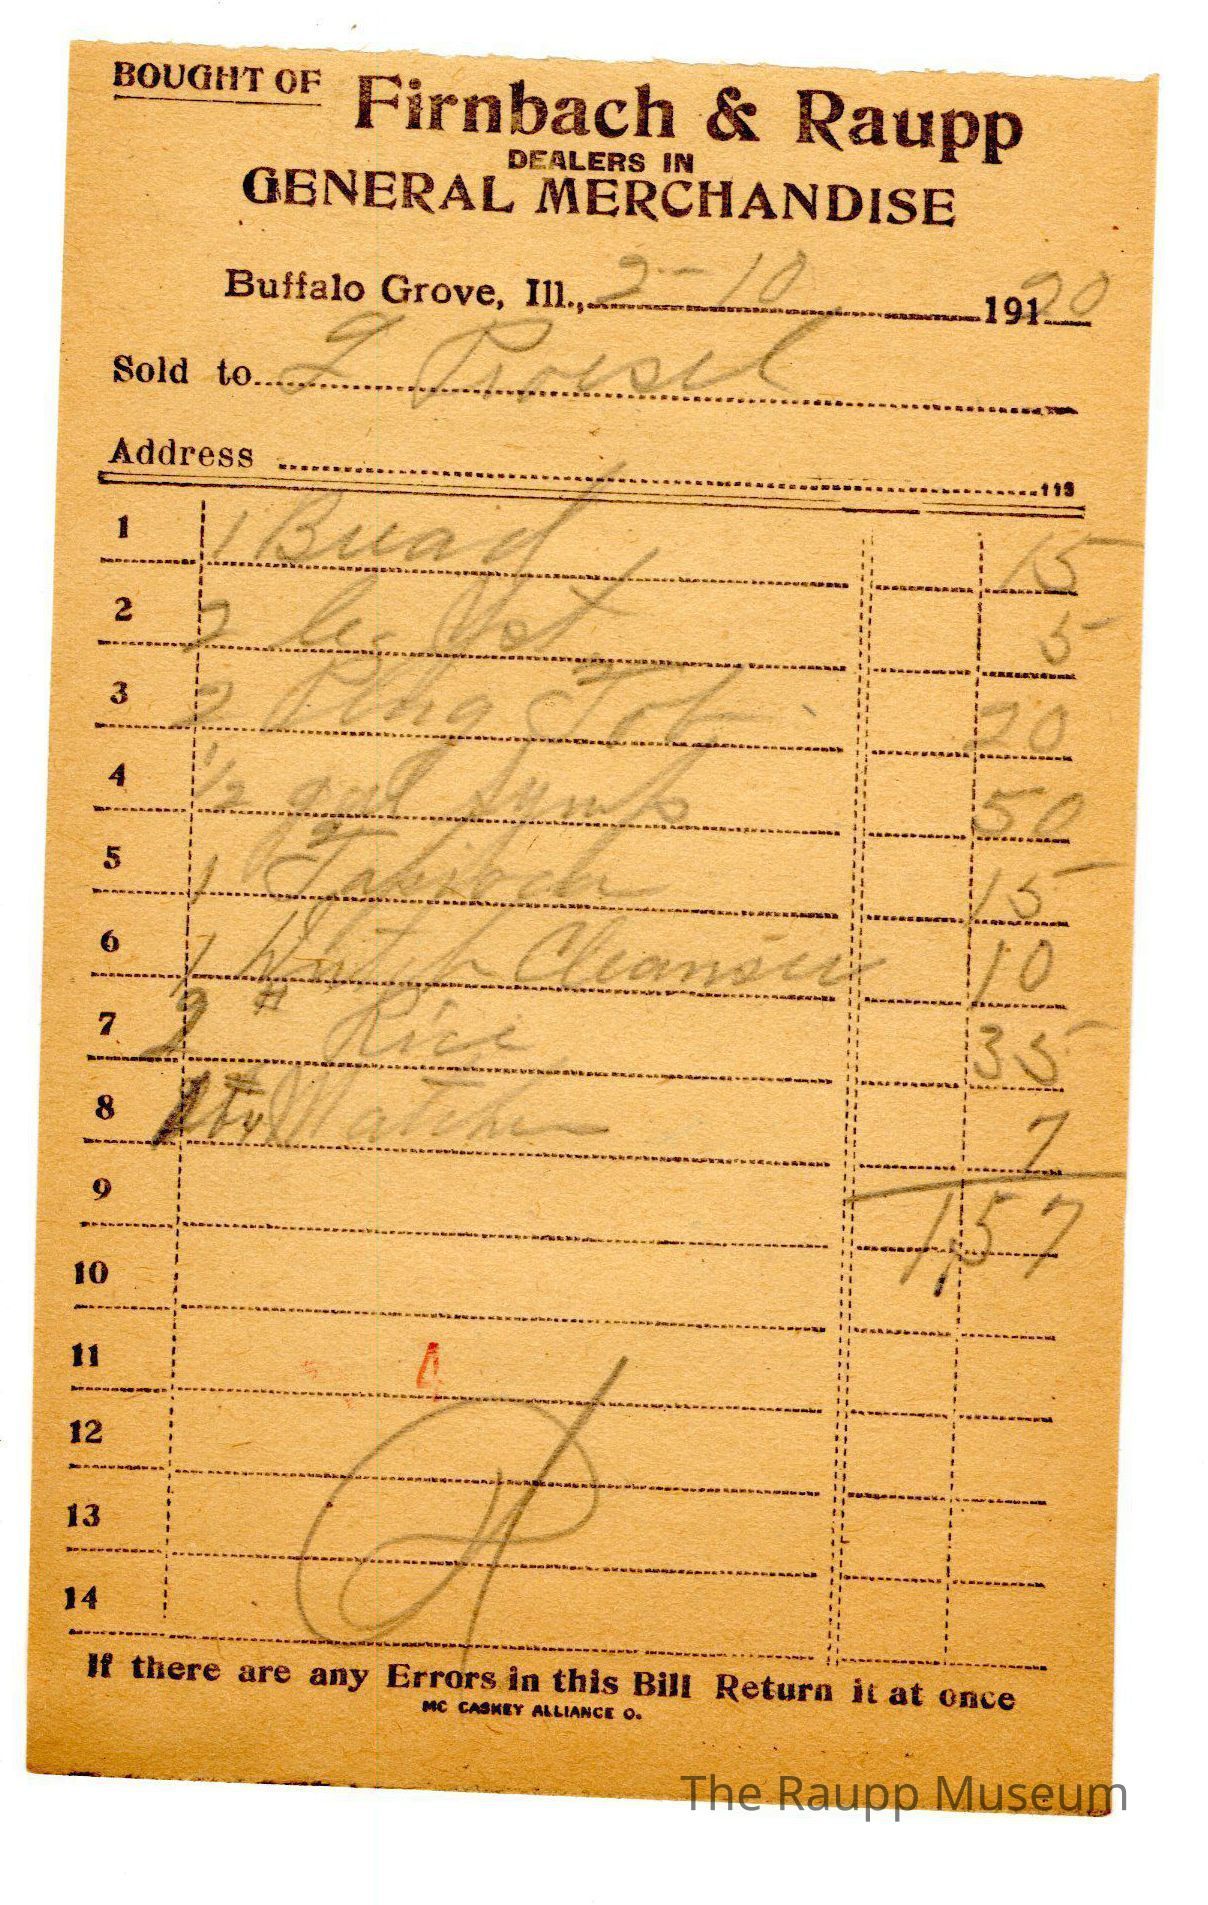 BOUGHT OF Firnbach & Raupp
DEALERS IN
GENERAL MERCHANDISE
Buffalo Grove, Ill., 2-10 191 20
Sold to
Address 113
1 1 Bread 15
2 2 Yst 5
3 2 Plug Tob 20
4 1/2 gal Syrup 50
5 1 Tapioca 15
6 1 Dutch Cleanser 10
7 2 # Rice 35
8 Matches 7
9 1,57
10
11 4
12
13
14
If there are any Errors in this Bill Return it at once
MC CASKEY ALLIANCE O.
The Raupp Museum